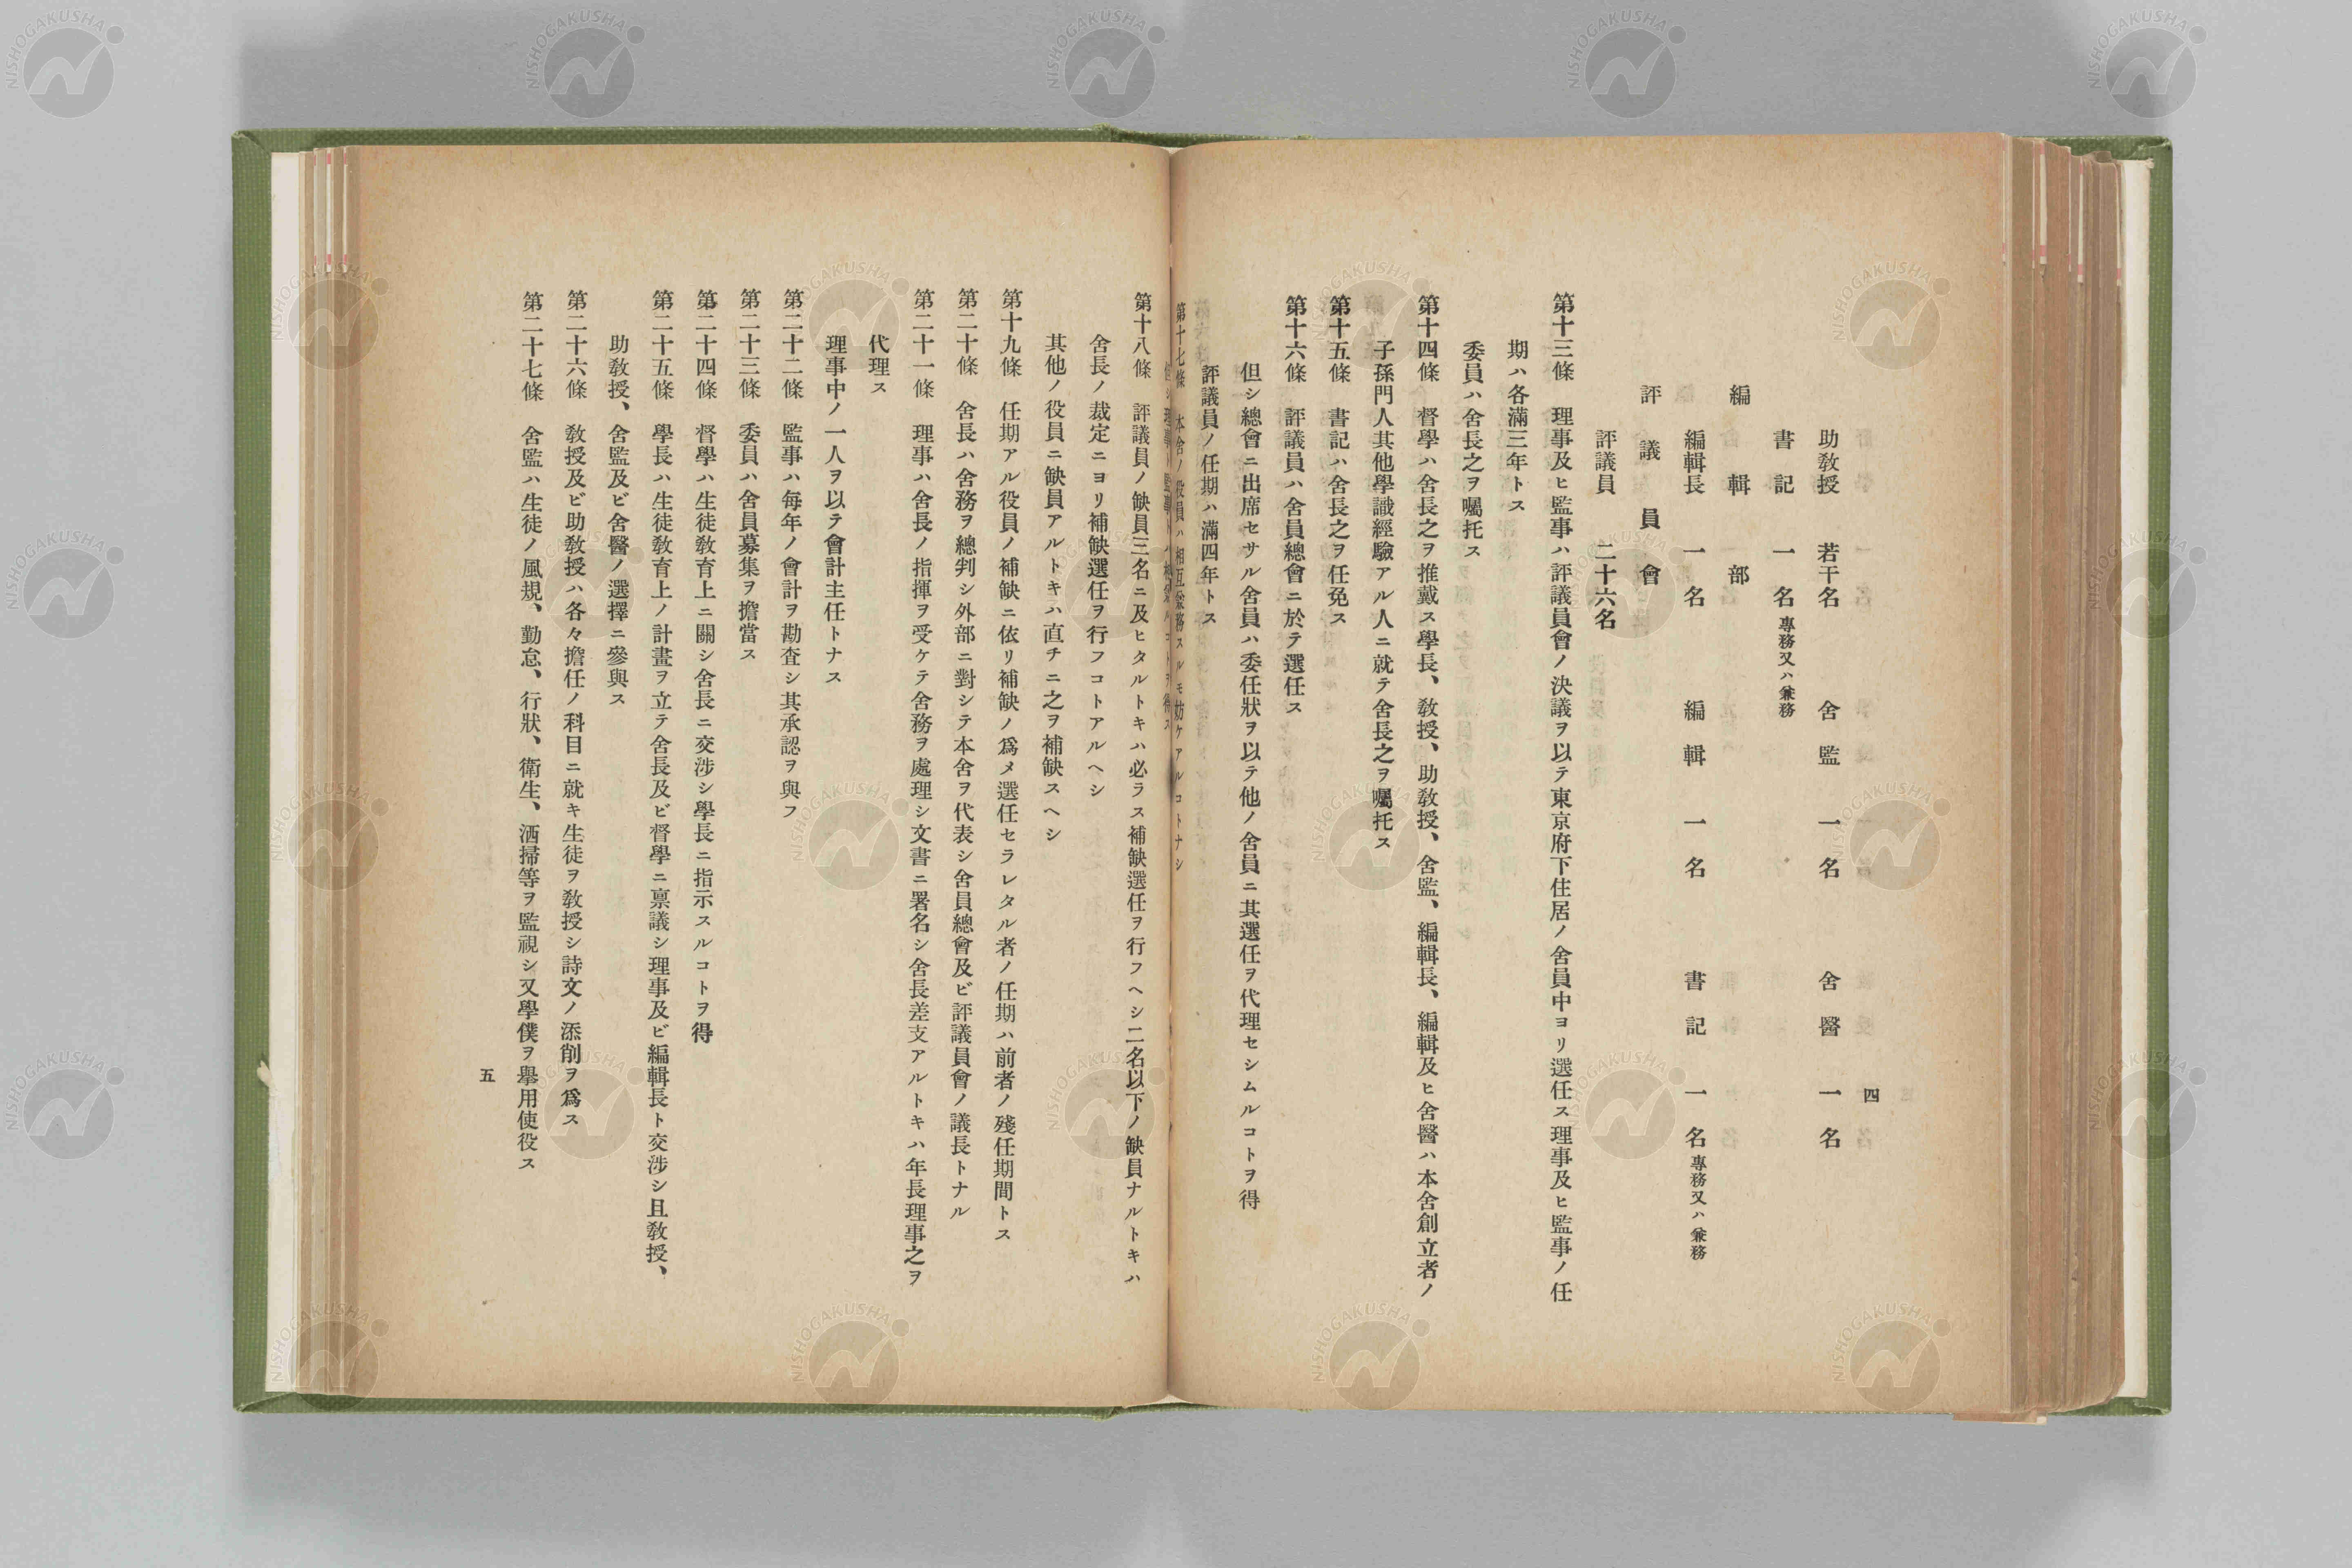 四
助教授　若干名　舍監　一名　舍醫　一名
書記　一名　專務又ハ兼務
編輯部
編輯長　一名　編輯　一名　書記　一名　專務又ハ兼務
評議員會
評議員　二十六名
第十三條　理事及ヒ監事ハ評議員會ノ決議ヲ以テ東京府下住居ノ舍員中ヨリ選任ス理事及ヒ監事ノ任
期ハ各滿三年トス
委員ハ舍長之ヲ囑托ス
第十四條　督學ハ舍長之ヲ推戴ス學長、教授、助教授、舍監、編輯長、編輯及ヒ舍醫ハ本舍創立者ノ
子孫門人其他學識經驗アル人ニ就テ舍長之ヲ囑托ス
第十五條　書記ハ舍長之ヲ任免ス
第十六條　評議員ハ舍員總會ニ於テ選任ス
但シ總會ニ出席セサル舍員ハ委任狀ヲ以テ他ノ舍員ニ其選任ヲ代理セシムルコトヲ得
評議員ノ任期ハ滿四年トス
第十七條　本舍ノ役員ハ相互兼務スルモ妨ケアルコトナシ
但シ理事ト監事トハ相兼ヌルコトヲ得ス
第十八條　評議員ノ缺員三名ニ及ヒタルトキハ必ラス補缺選任ヲ行フヘシ二名以下ノ缺員ナルトキハ
舍長ノ裁定ニヨリ補缺選任ヲ行フコトアルヘシ
其他ノ役員ニ缺員アルトキハ直チニ之ヲ補缺スヘシ
第十九條　任期アル役員ノ補缺ニ依リ補缺ノ爲メ選任セラレタル者ノ任期ハ前者ノ殘任期間トス
第二十條　舍長ハ舍務ヲ總判シ外部ニ對シテ本舍ヲ代表シ舍員總會及ビ評議員會ノ議長トナル
第二十一條　理事ハ舍長ノ指揮ヲ受ケテ舍務ヲ處理シ文書ニ署名シ舍長差支アルトキハ年長理事之ヲ
代理ス
理事中ノ一人ヲ以テ會計主任トナス
第二十二條　監事ハ每年ノ會計ヲ勘査シ其承認ヲ與フ
第二十三條　委員ハ舍員募集ヲ擔當ス
第二十四條　督學ハ生徒教育上ニ關シ舍長ニ交涉シ學長ニ指示スルコトヲ得
第二十五條　學長ハ生徒教育上ノ計畫ヲ立テ舍長及ビ督學ニ稟議シ理事及ビ編輯長ト交涉シ且教授、
助教授、舍監及ビ舍醫ノ選擇ニ參與ス
第二十六條　教授及ビ助教授ハ各々擔任ノ科目ニ就キ生徒ヲ教授シ詩文ノ添削ヲ爲ス
第二十七條　舍監ハ生徒ノ風規、勤怠、行狀、衛生、洒掃等ヲ監視シ又學僕ヲ擧用使役ス
五
NISHOGAKUSHA